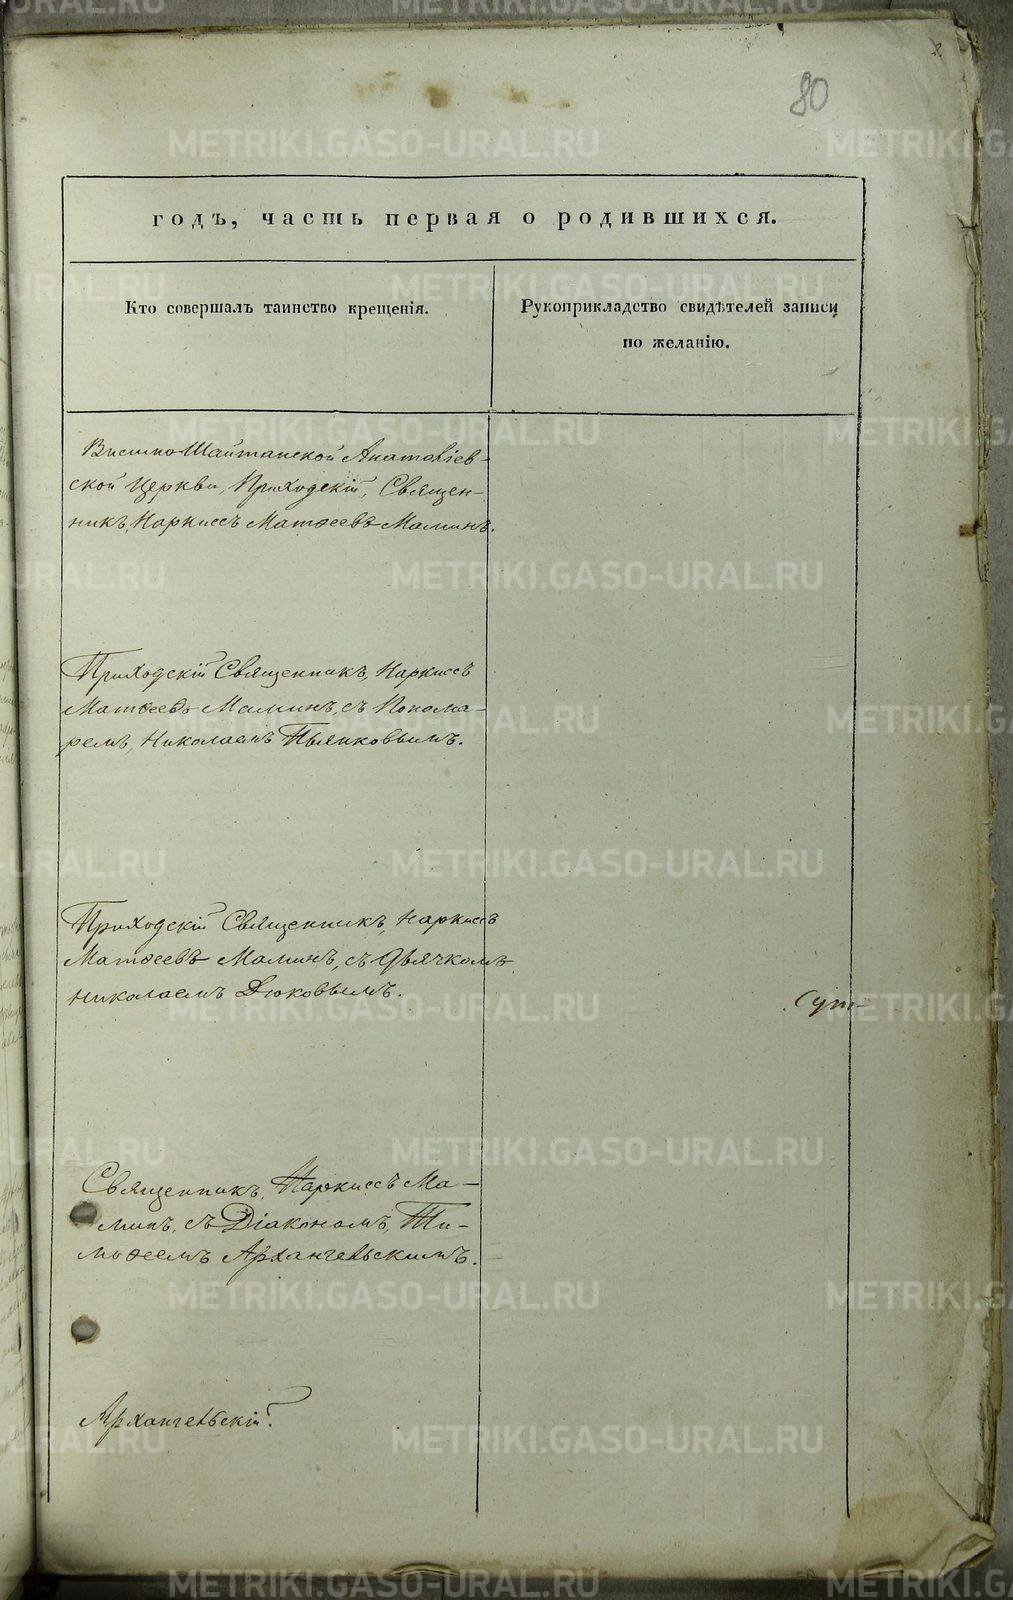 80
годъ, часть первая о родившихся.
Кто совершалъ таинство крещенія.
Рукоприкладство свидѣтелей записи
по желанію.
Висимо Шайтанской Анатоліев-
ской Церкви, Приходскій, Священ-
никъ, Наркисъ Матѳеевъ Маминъ.
Приходскій Священникъ, Наркисъ
Матѳеевъ Маминъ, съ Понома-
ремъ, Николаемъ Пьянковымъ.
Приходскій Священникъ, Наркисъ
Матѳеевъ Маминъ, съ Дьячкомъ
Николаемъ Дюковымъ.
Сут-
Священникъ, Наркисъ Ма-
минъ, съ Діакономъ, Ти-
моѳеемъ Архангельскимъ.
Архангельскій.
METRIKI.GASO-URAL.RU